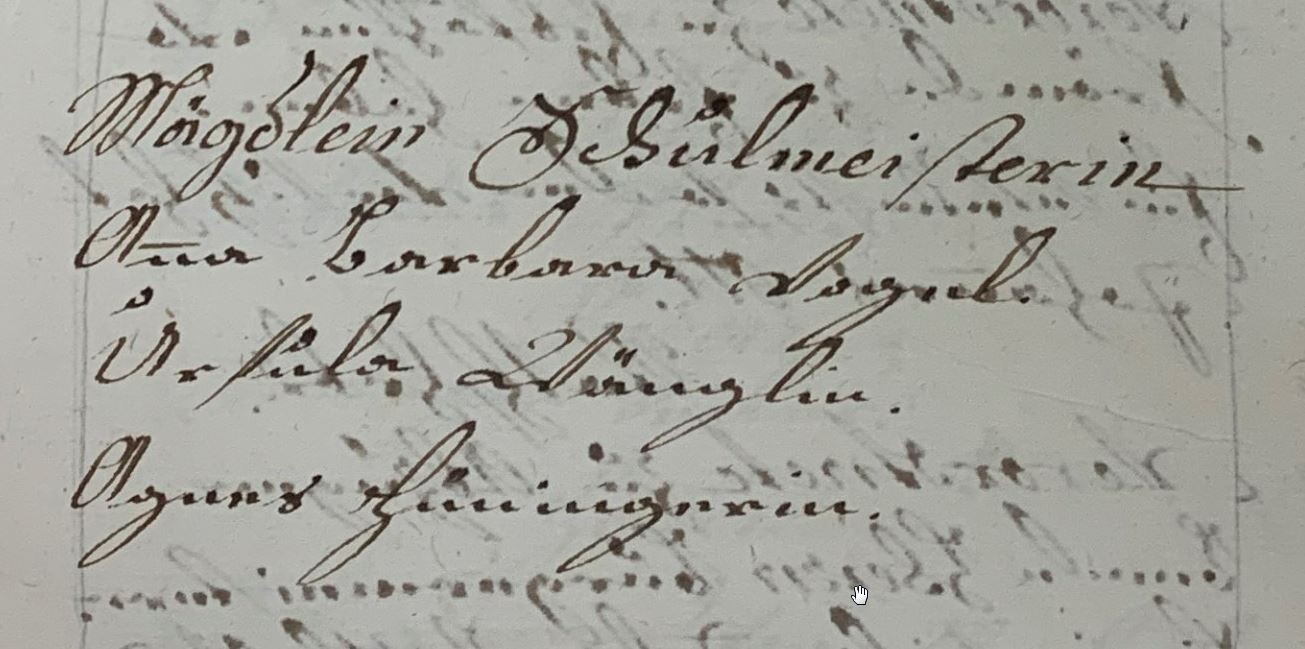 Mägdlein Schůlmeisterin
An̄a Barbara Vogel.
Ůrsůla Wänglin.
Agnes Hüningerin.